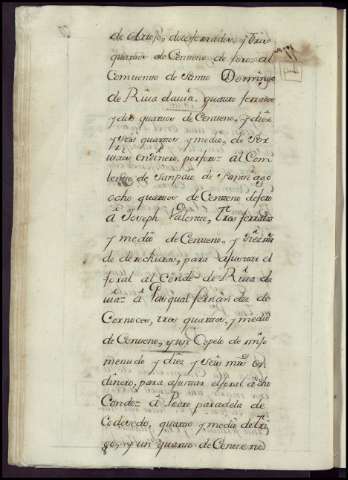 de Abrojo, doze ferrados, y tres
quartos de Centeno de foro: al
Combento de Santo Domingo
de Rivadavia, quatro ferrados
y dos quartos de Centeno, y diez
y seis quartos y medio, de
en dinero, por foro: al Com
bento de Sanpaio de Santiago
ocho quartos de Centeno de foro
â Joseph Valente, tres ferrados
y medio de Centeno, y
de derechuras, para ajuntar el
foral al Conde de Rivada
via: â Pasqual fernandez de
Cornoces, tres quartos, y medio
de Centeno, y un Copelo de mijo
menudo y diez y seis mrs en
dinero, para ajuntar el foral a dho
Conde: â Pedro paradela de
Codesedo, quarto y medio de tri
go, y un quarto de Centeno